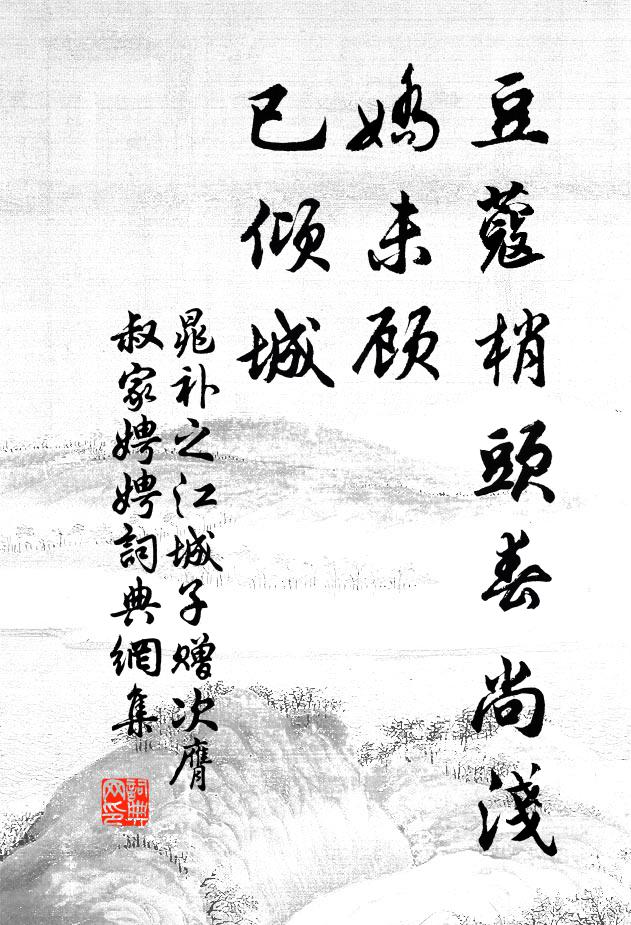 豆蔻梢頭春尚淺
嬌未顧
已傾城
晁补之江城子赠次膺
叔家娉娉詞典網集
詞典網印